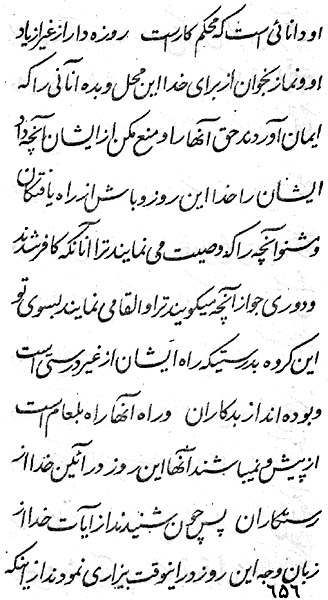 او دانائی است که محکم کار است روزه دار از غیر از یاد
او و نماز بخوان از برای خدا این محل و بده آنانی را که
ایمان آوردند حق آنها را و منع مکن از ایشان آنچه داد
ایشان را خدا این روز و باش از راه یافتگان
و شنو آنچه را که وصیت می نمایند ترا آنانکه کافر شدند
و دوری جو از آنچه میگویند ترا و القا می نمایند بسوی تو
این گروه بدرستیکه راه ایشان از غیر درستی است
و بوده اند از بدکاران و راه آنها راه بلعام است
از پیش و نمیباشند آنها این روز در آئین خدا از
رستکاران پس چون شنیدند از آیات خدا از
زبان وجه این روز در اینوقت بیزاری نمودند از اینکه
۶۵۶